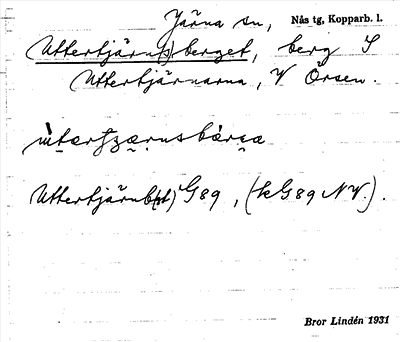 Järna sn, Nås tg, Kopparb. l.
Uttertjärn(s)berget, berg S
Uttertjärnarna, V Örsen.
Uttertjärnb(et) G89, (kG89 NV.).
Bror Lindén 1931